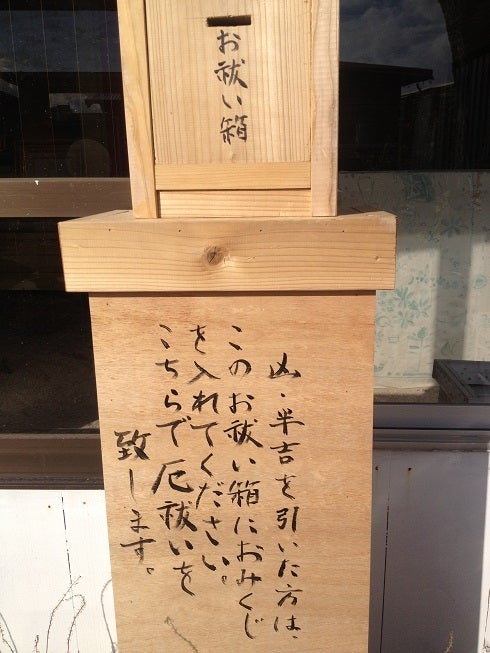 お祓い箱
凶・半吉を引いた方は、
このお祓い箱におみくじ
を入れてください。
こちらで厄祓いを
致します。